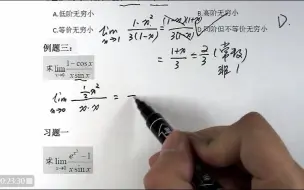 A.低阶无穷小
C.等价无穷小
D.同阶但不等价无穷小
D.
lim x→1 1-x² / 3(1-x)
(1-x)(1+x) / 3(1-x)
= 1+x / 3 = 2/3 (常数)
例题三:
求 lim x→0 1-cosx / x sin x
lim x→0 ½x² / x·x =
习题一
求 lim x→0 e^x² -1 / x sin x
0:23:30